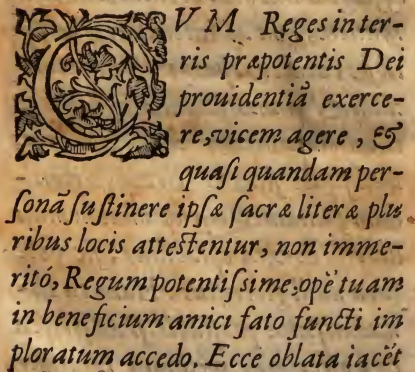 CVM Reges in ter-
ris præpotentis Dei
prouidentiâ exerce-
re, vicem agere, &
quaſi quandam per-
ſonã ſuſtinere ipſæ ſacræ literæ plu
ribus locis atteſtentur, non imme-
ritó, Regum potentiſſime, opẽ tuam
in beneficium amici fato functi im
ploratum accedo. Ecce oblata iacẽt